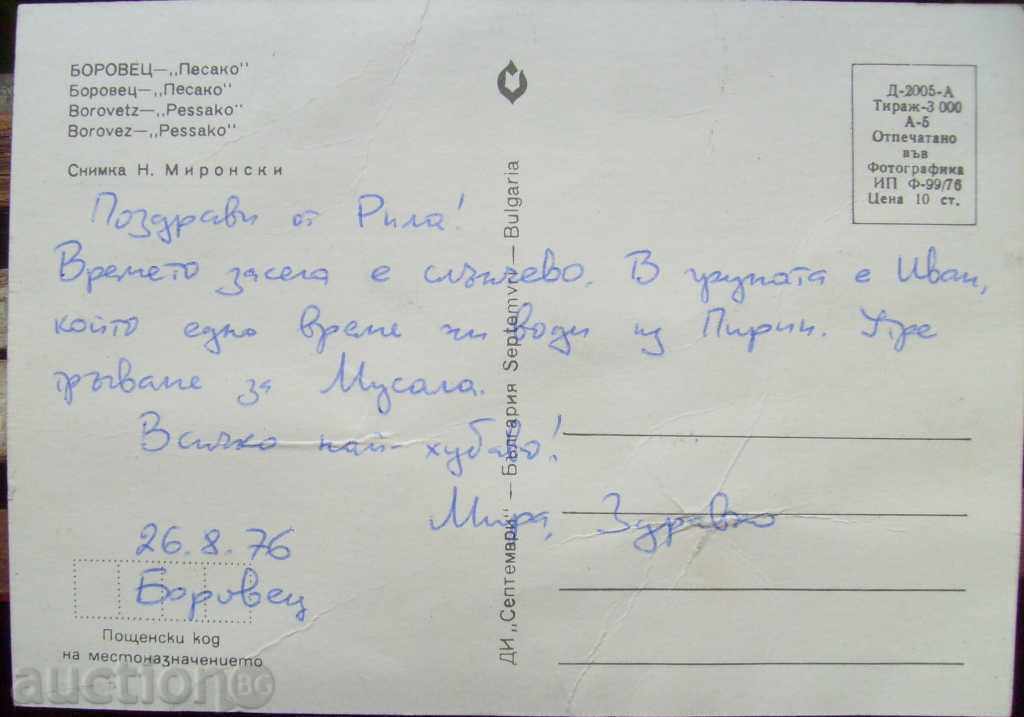 БОРОВЕЦ—„Песако"
Боровец—„Песако"
Borovetz—„Pessako"
Borovez—„Pessako"
Снимка Н. Миронски
Д-2005-А
Тираж-3 000
А-5
Отпечатано
във
Фотографика
ИП Ф-99/76
Цена 10 ст.
Поздрави от Рила!
Времето засега е слънчево. В групата е Иван,
който едно време ни води из Пирин. Утре
тръгваме за Мусала.
Всичко най-хубаво!
Мира, Здравко
26.8.76
Боровец
Пощенски код
на местоназначението
ДИ „Септември" — България Septemvri — Bulgaria
auction BG